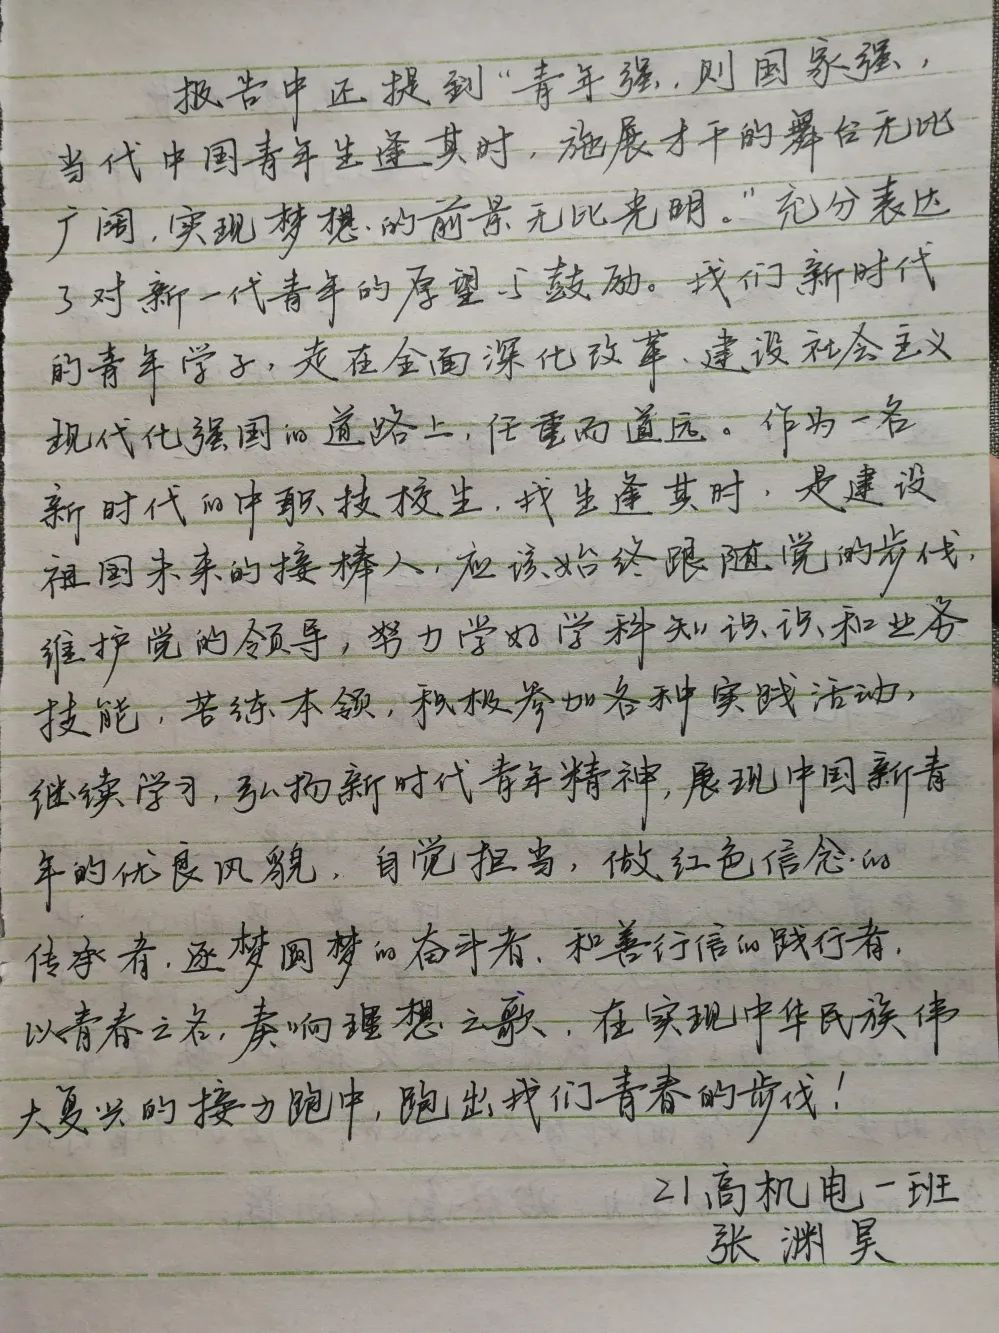 报告中还提到“青年强,则国家强,
当代中国青年生逢其时,施展才干的舞台无比
广阔,实现梦想的前景无比光明。”充分表达
了对新一代青年的厚望与鼓励。我们新时代
的青年学子,走在全面深化改革、建设社会主义
现代化强国的道路上,任重而道远。作为一名
新时代的中职技校生,我生逢其时,是建设
祖国未来的接棒人,应该始终跟随党的步伐,
维护党的领导,努力学好学科知识识和业务
技能,苦练本领,积极参加各种实践活动,
继续学习,弘扬新时代青年精神,展现中国新青
年的优良风貌,自觉担当,做红色信念的
传承者,逐梦圆梦的奋斗者、和善行信的践行者,
以青春之名,奏响理想之歌,在实现中华民族伟
大复兴的接力跑中,跑出我们青春的步伐!
21高机电一班
张渊昊